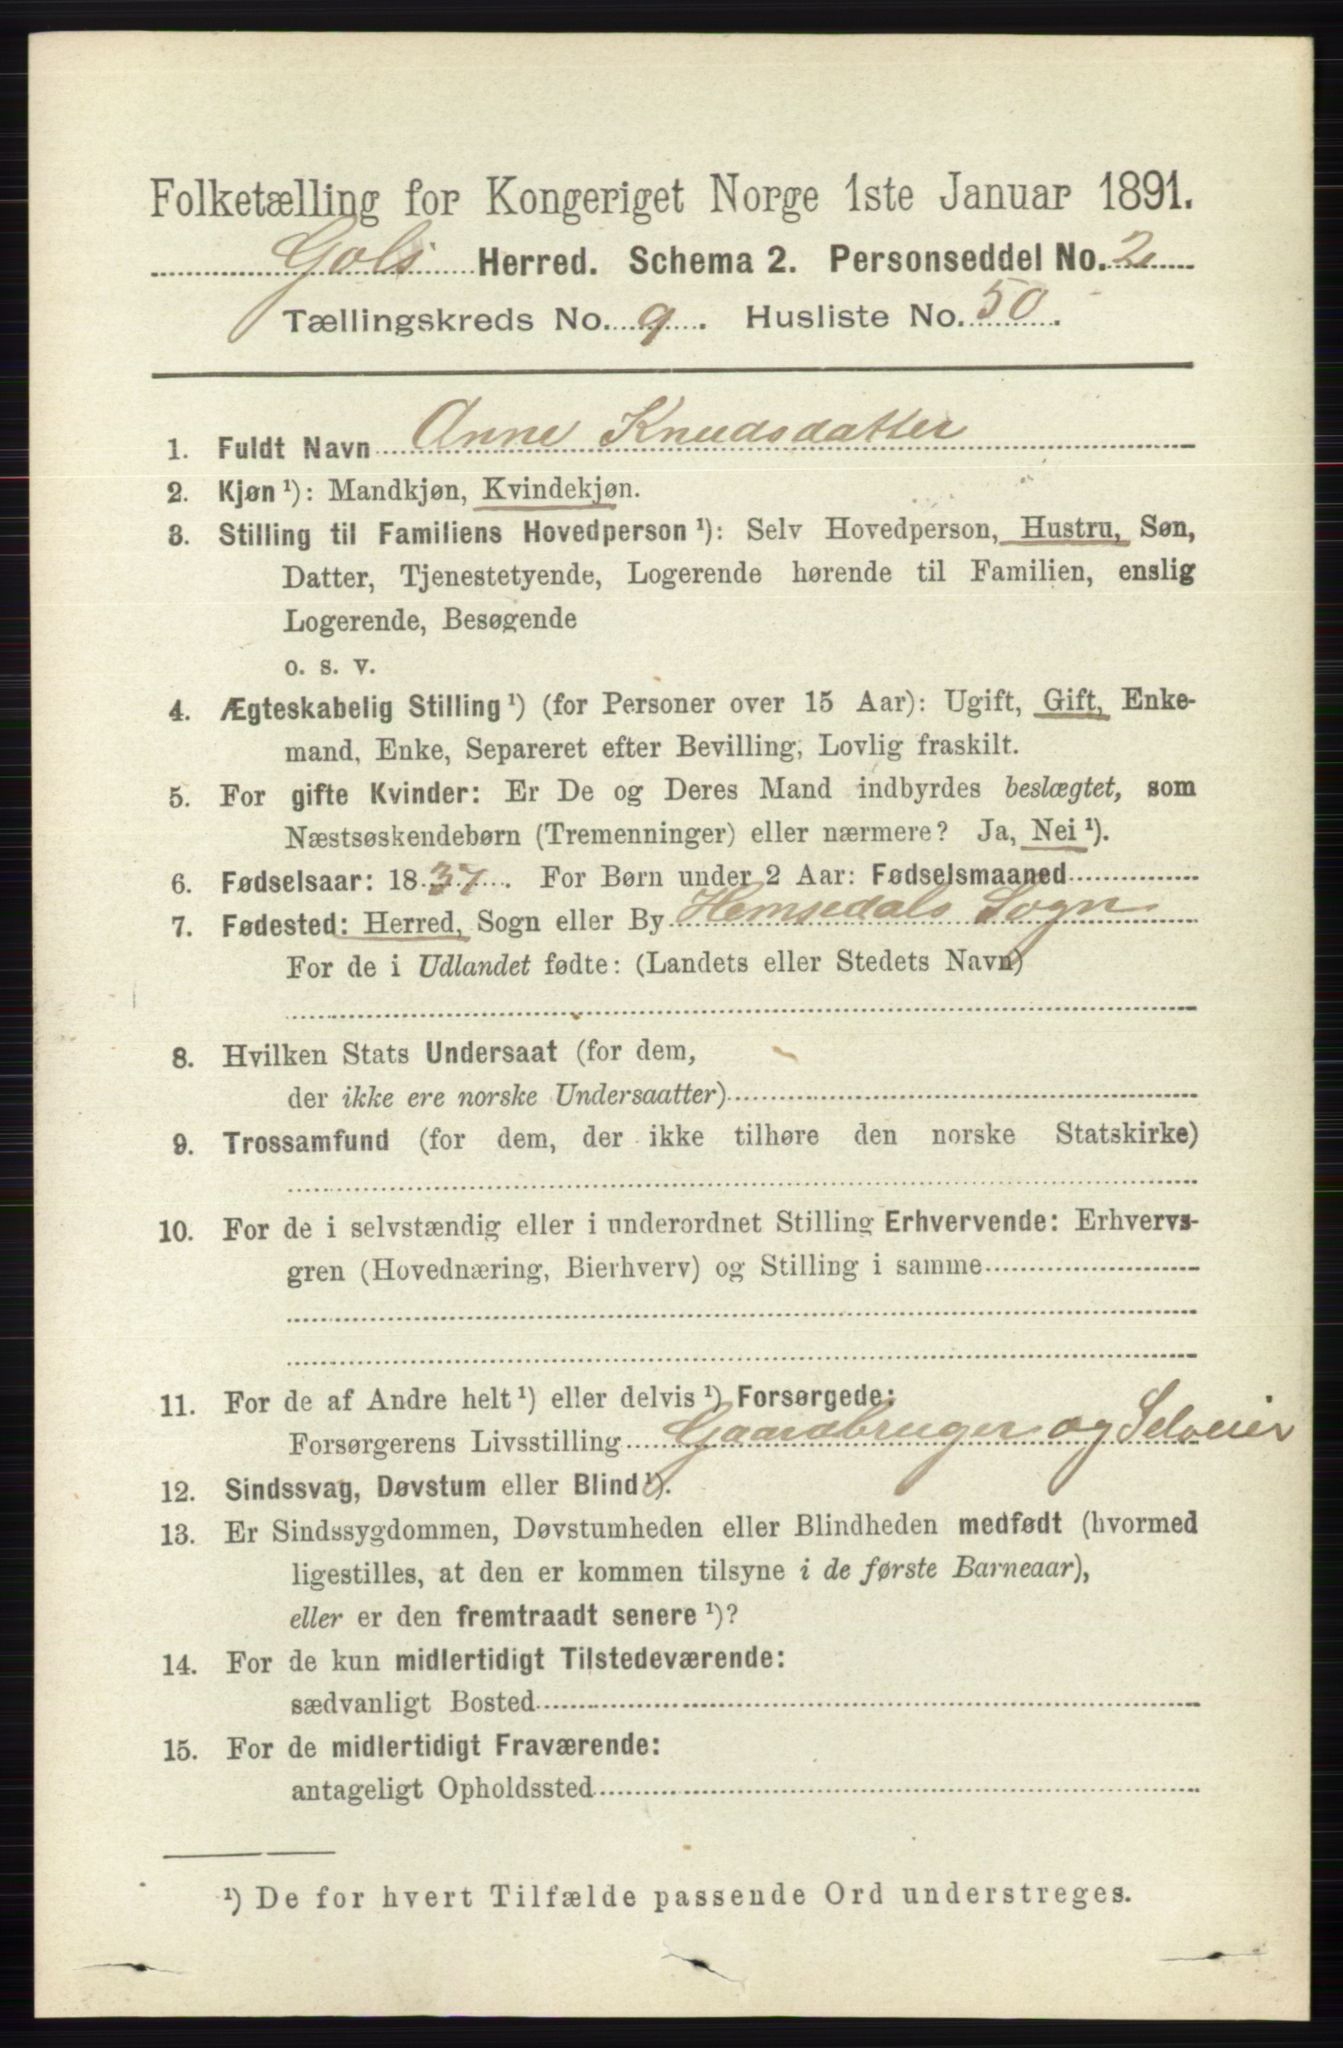 Folketælling for Kongeriget Norge 1ste Januar 1891.
Gols Herred. Schema 2. Personseddel No. 2
Tællingskreds No. 9. Husliste No. 50.
1. Fuldt Navn Anne Knudsdatter
2. Kjøn ¹): Mandkjøn, Kvindekjøn.
3. Stilling til Familiens Hovedperson ¹): Selv Hovedperson, Hustru, Søn,
Datter, Tjenestetyende, Logerende hørende til Familien, enslig
Logerende, Besøgende
o. s. v.
4. Ægteskabelig Stilling ¹) (for Personer over 15 Aar): Ugift, Gift, Enke-
mand, Enke, Separeret efter Bevilling, Lovlig fraskilt.
5. For gifte Kvinder: Er De og Deres Mand indbyrdes beslægtet, som
Næstsøskendebørn (Tremenninger) eller nærmere? Ja, Nei ¹).
6. Fødselsaar: 1837. For Børn under 2 Aar: Fødselsmaaned
7. Fødested: Herred, Sogn eller By Hemsedals Sogn
For de i Udlandet fødte: (Landets eller Stedets Navn)
8. Hvilken Stats Undersaat (for dem,
der ikke ere norske Undersaatter)
9. Trossamfund (for dem, der ikke tilhøre den norske Statskirke)
10. For de i selvstændig eller i underordnet Stilling Erhvervende: Erhvervs-
gren (Hovednæring, Bierhverv) og Stilling i samme
11. For de af Andre helt ¹) eller delvis ¹) Forsørgede:
Forsørgerens Livsstilling Gaardbruger og Selveier
12. Sindssvag, Døvstum eller Blind ¹).
13. Er Sindssygdommen, Døvstumheden eller Blindheden medfødt (hvormed
ligestilles, at den er kommen tilsyne i de første Barneaar),
eller er den fremtraadt senere ¹)?
14. For de kun midlertidigt Tilstedeværende:
sædvanligt Bosted
15. For de midlertidigt Fraværende:
antageligt Opholdssted
¹) De for hvert Tilfælde passende Ord understreges.